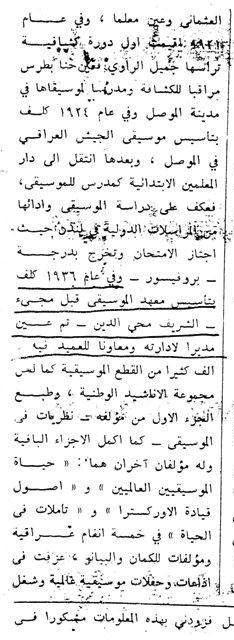 العثماني وعين معلما ، وفي عـــام
١٩٢١ اقيمت اول دورة كشافيـة
ترأسها جميل الراوي فعين حنا بطرس
مراقبا للكشافة ومدرسا لموسيقاها في
مدينة الموصل وفي عام ١٩٢٤ كلف
بتأسيس موسيقى الجيش العراقـي
في الموصل ، وبعدها انتقل الى دار
المعلمين الابتدائية كمدرس للموسيقى،
فعكف على دراسة الموسيقى وادائها
المراسلات الدولية في لندن حيث
اجتاز الامتحان وتخرج بدرجـــة
ـ بروفيسور ـ وفي عام ١٩٣٦ كلف
بتأسيس معهد الموسيقى قبل مجيء
ـ الشريف محي الدين ـ ثم عـــين
مديرا لادارته ومعاونا للعميد فيه
الف كثيرا من القطع الموسيقية كما لحن
مجموعة الاناشيد الوطنية ، وطبـع
الجزء الاول من مؤلفه ـ نظريات فى
الموسيقى ـ كما اكمل الاجزاء الباقية
وله مؤلفان آخران هما: « حيــاة
الموسيقيين العالميين » و « اصـول
قيادة الاوركسترا » و « تأملات فى
الحياة » في خمسة انغام عــراقية
ومؤلفات للكمان والبيانو ، عزفت فى
اذاعات وحفلات موسيقية عالمية وشغل
فزودني بهذه المعلومات مشكورا فـى